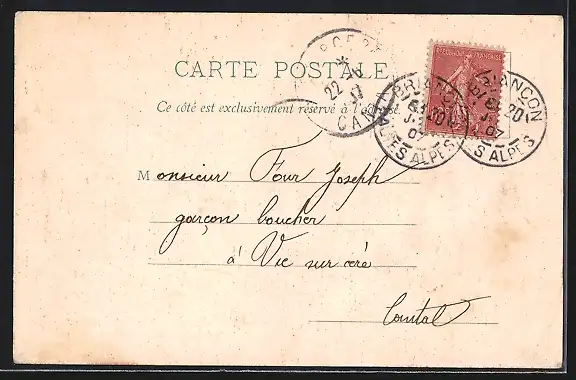 CARTE POSTALE
Ce côté est exclusivement réservé à l'adresse
22
CAN
BRIANÇON
20
07
HAUTES ALPES
BRIANÇON
20
07
HAUTES ALPES
Monsieur Four Joseph
garçon boucher
à Vic sur ceré
Cantal